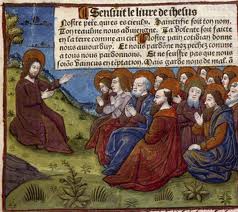 Sensuit le livre de ihesus
Nostre pere qui es es cieulx. Sainctifie soit ton nom
Ton reaulme nous adviengne. Ta volente soit faicte
en la terre comme au ciel. Nostre pain cotidian donne
nous aujourduy. Et nous pardonne noz pechez comme
a tous nous pardonnons. Et ne seuffre pas que nous
soions vaincus en temptation. Mais garde nous de mal. a